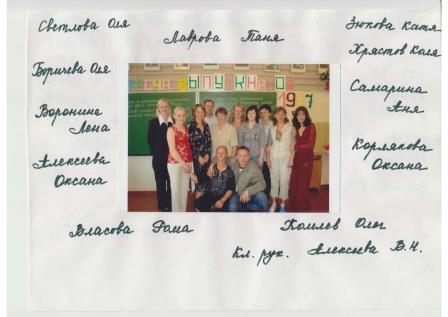 Светлова Оля
Лаврова Таня
Зюкова Катя
Христов Коля
Боричева Оля
Самарина
Аня
Воронина
Лена
Алексеева
Оксана
Корлякова
Оксана
ВЫПУСКНИКОВ
Власова Рома
Комлев Олег
Кл. рук. Алексеева В.Н.